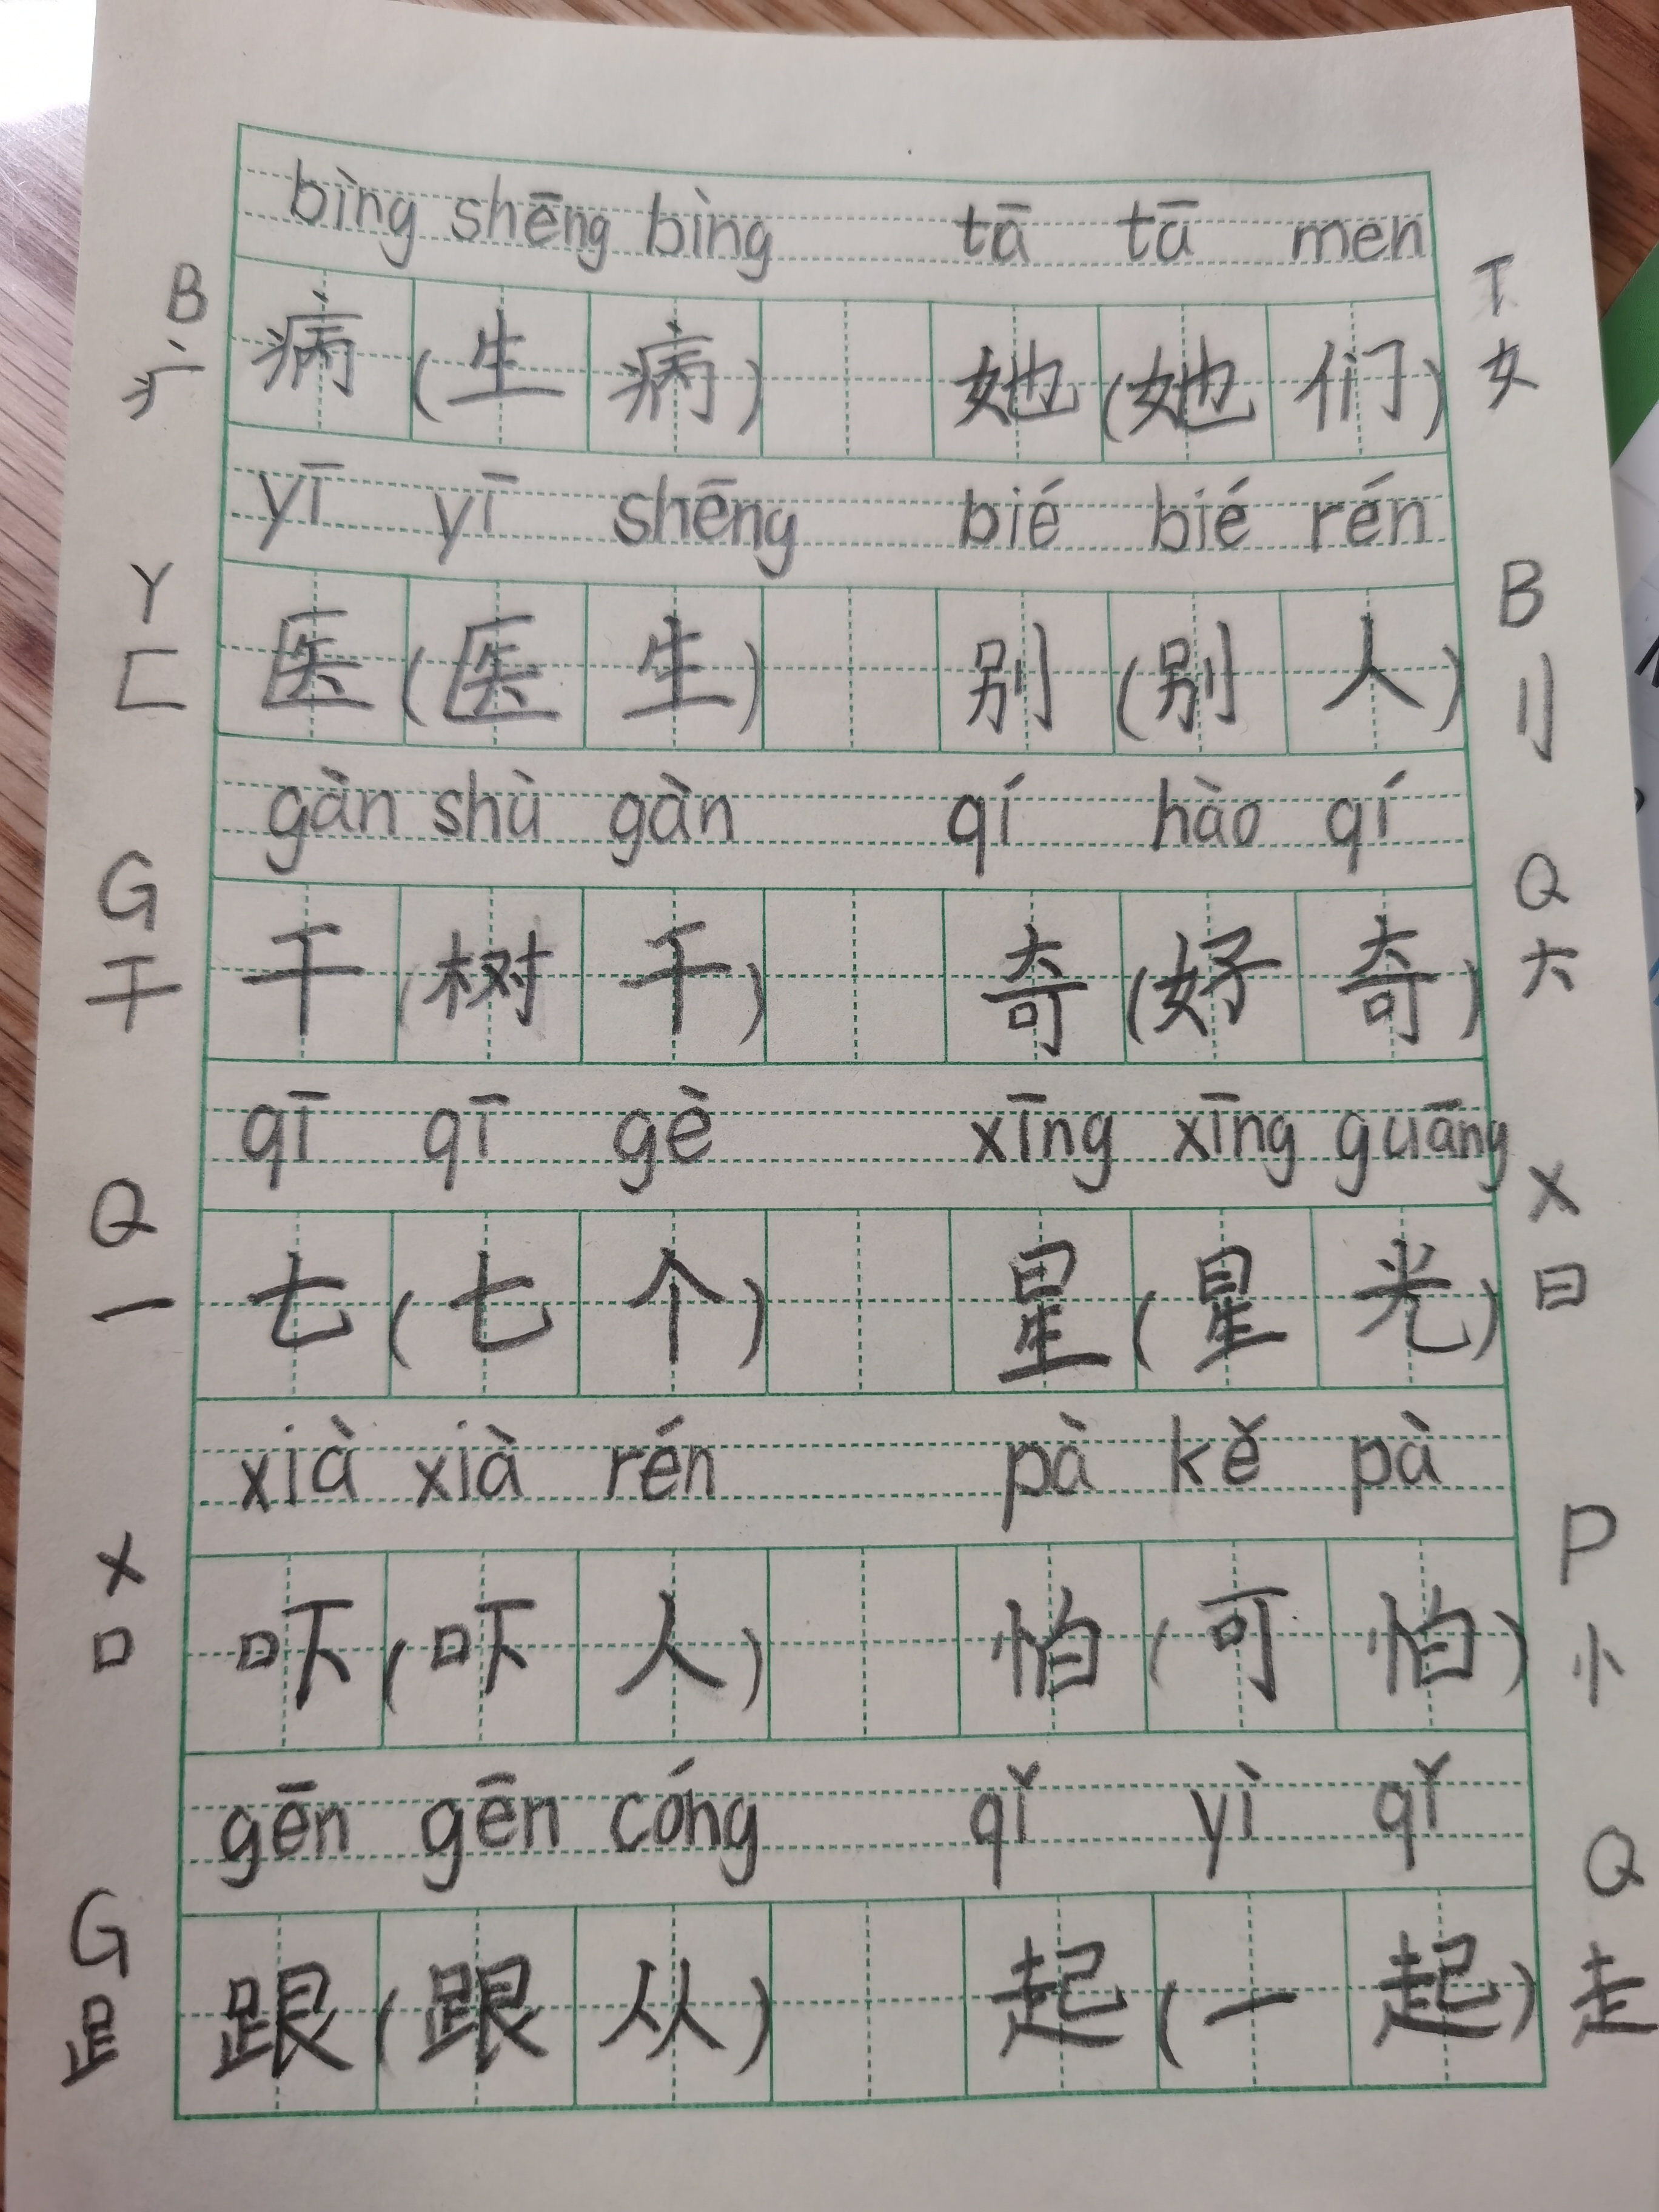 bìng shēng bìng tā tā men
B 病 (生 病) 她 (她 们) T
疒 女
yī yī shēng bié bié rén
Y 医 (医 生) 别 (别 人) B
匚 刂
gàn shù gàn qí hào qí
G 干 (树 干) 奇 (好 奇) Q
干 大
qī qī gè xīng xīng guāng
Q 七 (七 个) 星 (星 光) X
一 日
xià xià rén pà kě pà
X 吓 (吓 人) 怕 (可 怕) P
口 忄
gēn gēn cóng qǐ yì qǐ
G 跟 (跟 从) 起 (一 起) Q
𧾷 走